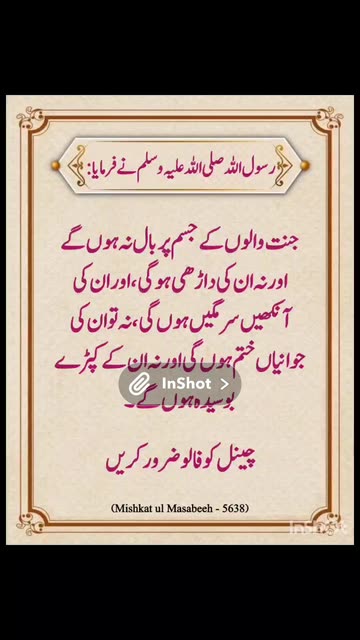 رسول اللہ صلی اللہ علیہ وسلم نے فرمایا:
جنت والوں کے جسم پر بال نہ ہوں گے
اور نہ ان کی داڑھی ہو گی، اور ان کی
آنکھیں سرمگیں ہوں گی، نہ تو ان کی
جوانیاں ختم ہوں گی اور نہ ان کے کپڑے
InShot
بوسیدہ ہوں گے۔
چینل کو فالو ضرور کریں
(Mishkat ul Masabeeh - 5638)
InShot